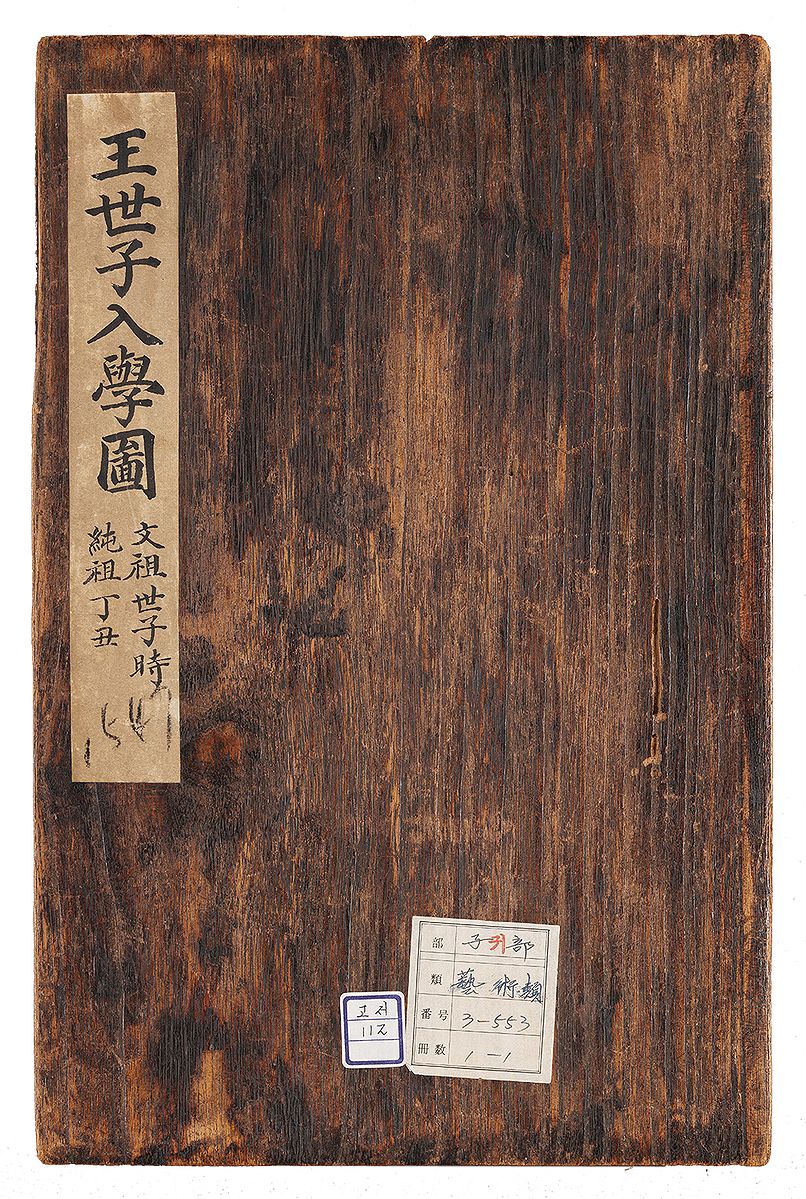 王世子入學圖
文祖世子時
純祖丁丑
部 子귀部
類 藝術類
番号 3-553
冊数 1-1
고서